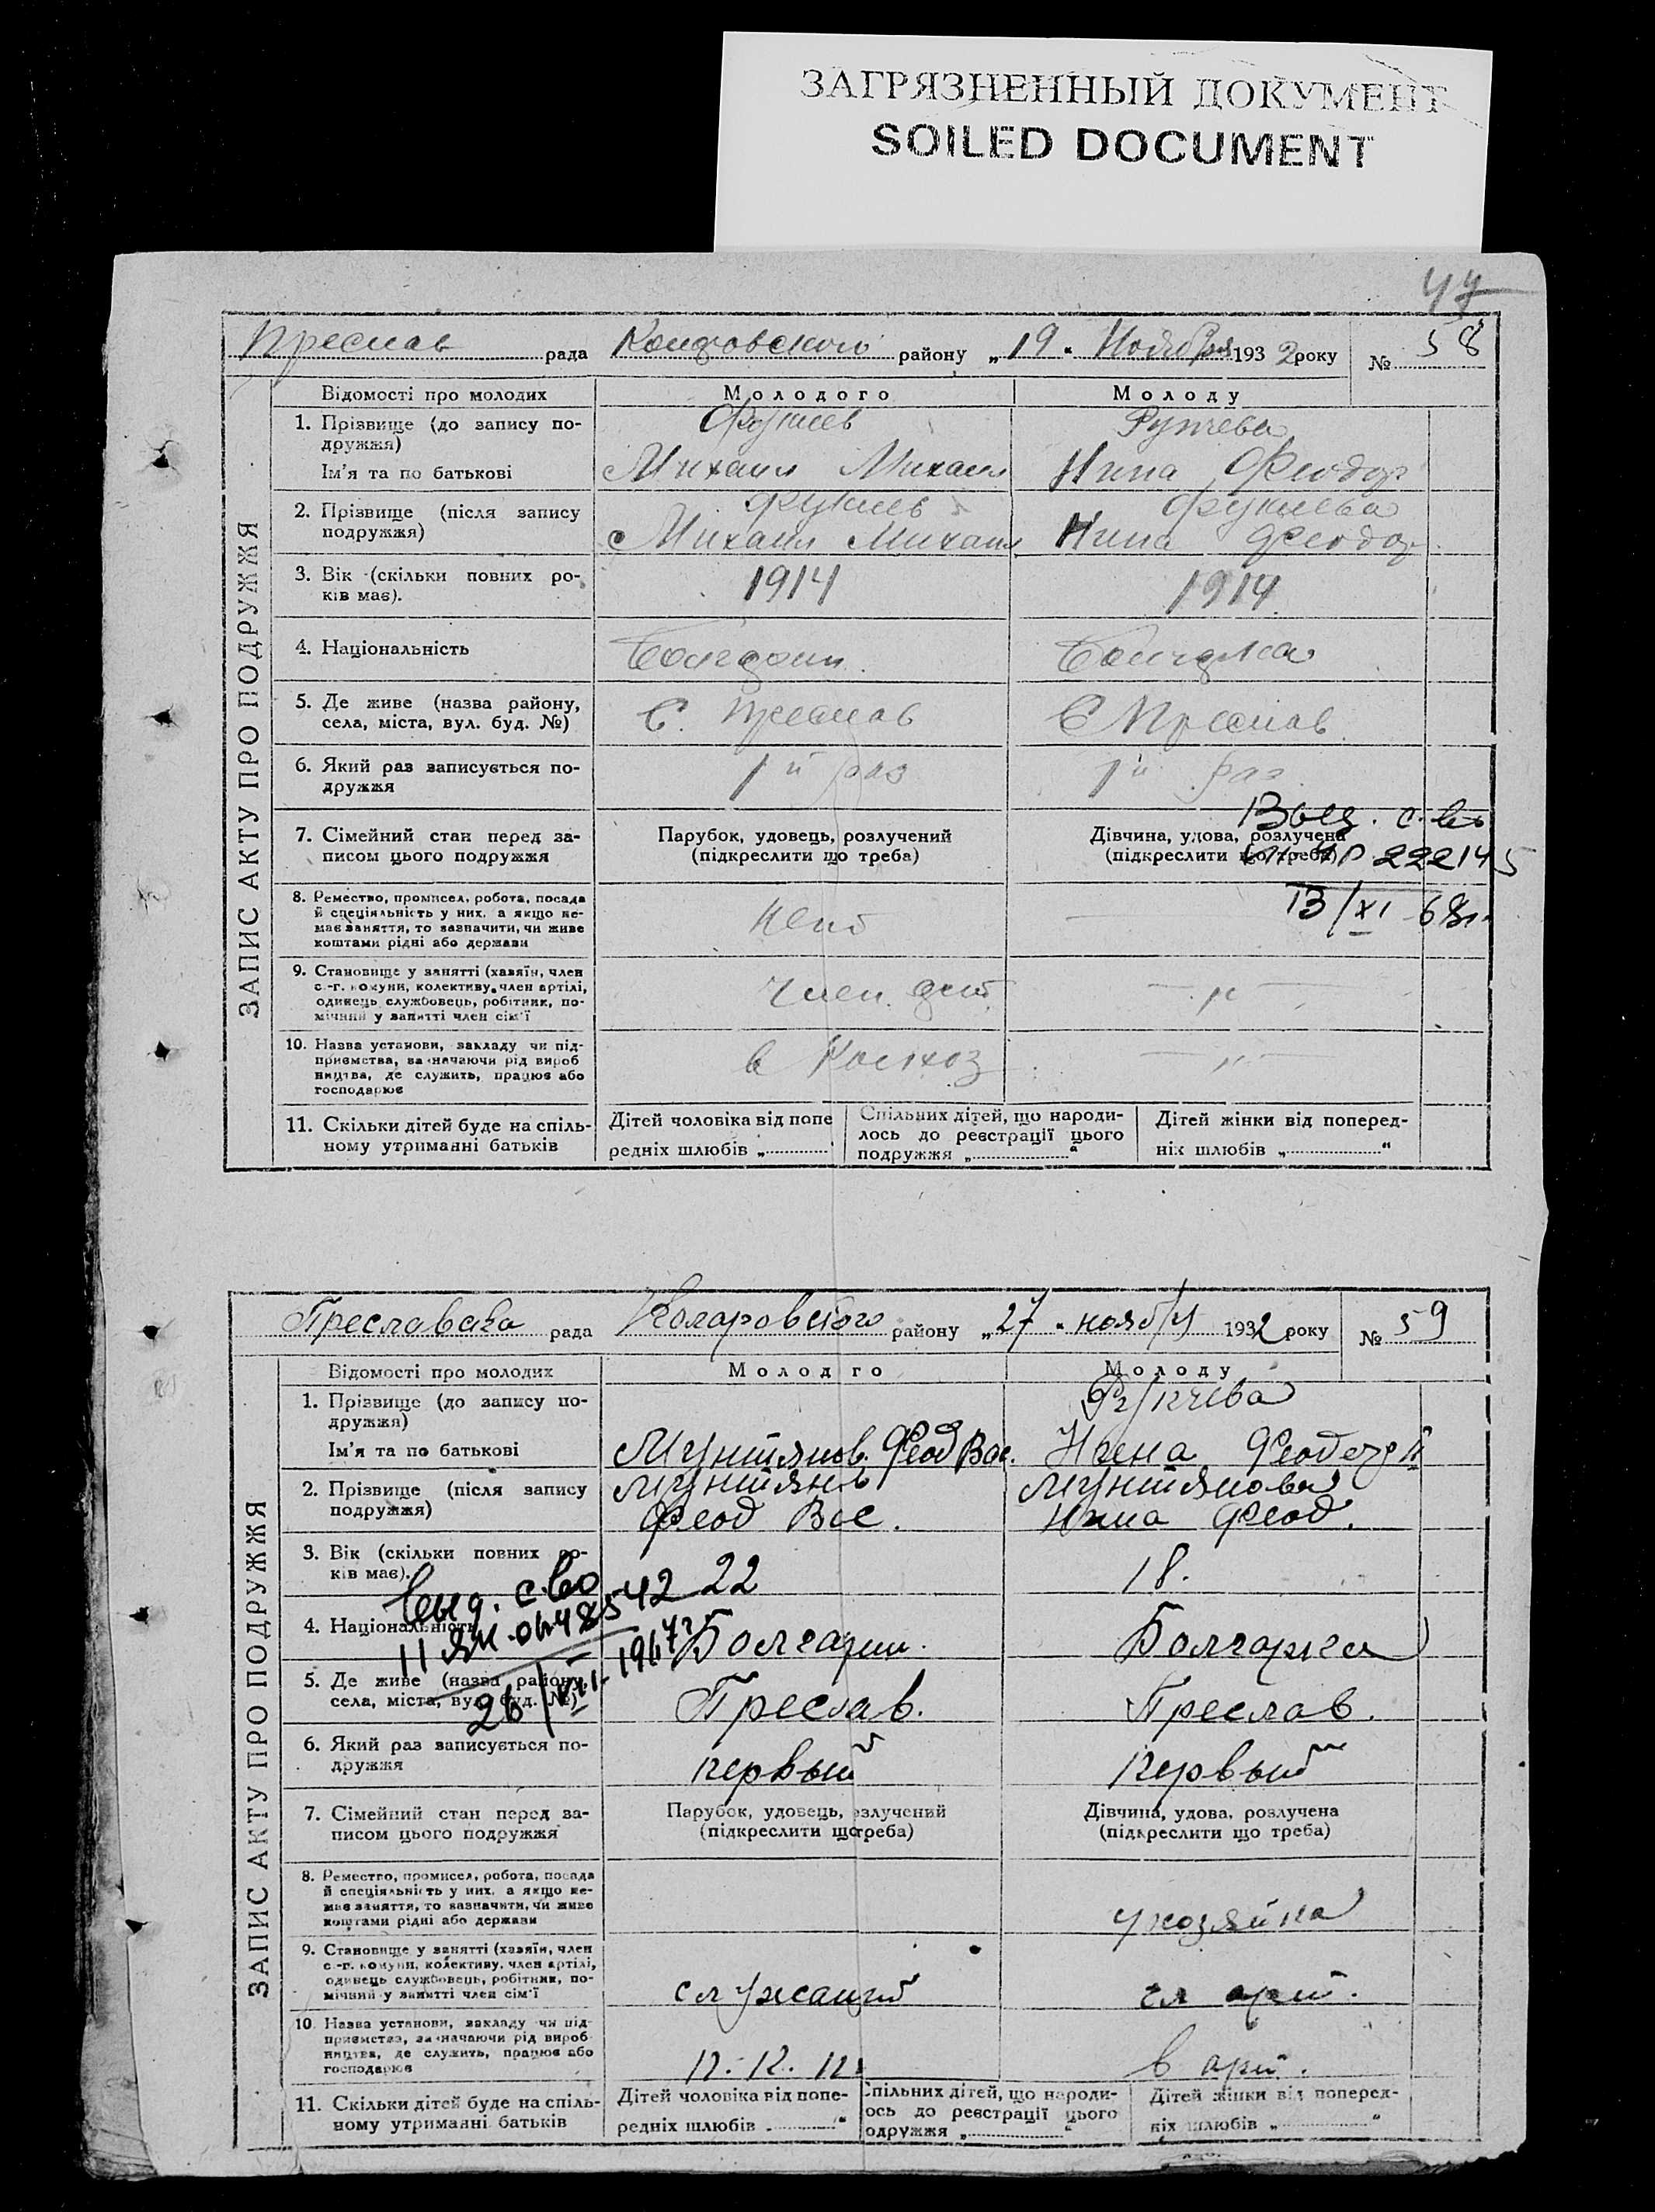 ЗАГРЯЗНЕННЫЙ ДОКУМЕНТ
SOILED DOCUMENT
Преслав рада района „19“ Ноября 1932 року № 58
ЗАПИС АКТУ ПРО ПОДРУЖЖЯ
Відомості про молодих
Молодого
Молоду
1. Прізвище (до запису по-
дружжя)
Ім'я та по батькові
Михаил Михаил
Нина Феодор
2. Прізвище (після запису
подружжя)
Михаил Михаил
Нина Феодор
3. Вік (скільки повних ро-
ків має).
1914
1914
4. Національність
Болгарин
Болгарка
5. Де живе (назва району,
села, міста, вул. буд. №)
С. Преслав
С Преслав
6. Який раз записується по-
дружжя
1й раз
1й раз
7. Сімейний стан перед за-
писом цього подружжя
Парубок, удовець, розлучений
(підкреслити що треба)
Дівчина, удова, розлучена
(підкреслити що треба)
Выд. с-во
222145
13/XI 68г.
8. Ремество, промисел, робота, посада
й спеціяльність у них, а якщо не-
має заняття, то зазначити, чи живе
коштами рідні або держави
9. Становище у занятті (хазяїн, член
с.-г. комуни, колективу, член артілі,
одинець службовець, робітник, по-
мічний у занятті член сім'ї
Член
10. Назва установи, закладу чи під-
приємства, зазначаючи рід вироб
ництва, де служить, працює або
господарює
в Колхоз
11. Скільки дітей буде на спіль-
ному утриманні батьків
Дітей чоловіка від попе
редніх шлюбів „
Спільних дітей, що народи-
лось до реєстрації цього
подружжя „ “
Дітей жінки від поперед-
ніх шлюбів „ “
Преславска рада Коларовского району „27“ ноября 1932 року № 59
ЗАПИС АКТУ ПРО ПОДРУЖЖЯ
Відомості про молодих
Молодго
Молоду
1. Прізвище (до запису по-
дружжя)
Ім'я та по батькові
Мунтянов Феод Вас.
Рупчева
Нина
2. Прізвище (після запису
подружжя)
Феод Вас.
Мунтянова
Нина Феод.
3. Вік (скільки повних ро-
ків має).
22
18.
Выд. с-во
26/VII 1967г
4. Національність
Болгарин.
Болгарка
5. Де живе (назва району,
села, міста, вул. буд. №)
Преслав.
Преслав.
6. Який раз записується по-
дружжя
первый
первый
7. Сімейний стан перед за-
писом цього подружжя
Парубок, удовець, озлучений
(підкреслити що треба)
Дівчина, удова, розлучена
(підкреслити що треба)
8. Ремество, промисел, робота, посада
й спеціяльність у них, а якщо не-
має заняття, то зазначити, чи живе
коштами рідні або держави
9. Становище у занятті (хазяїн, член
с.-г. комуни, колективу, член артілі,
одинець службовець, робітник, по-
мічний у занятті член сім'ї
служащий
чл арт.
10. Назва установи, закладу чи під-
приємства, зазначаючи рід вироб
ництва, де служить, працює або
господарює
в арт.
11. Скільки дітей буде на спіль-
ному утриманні батьків
Дітей чоловіка від попе-
редніх шлюбів „ “
Спільних дітей, що народи-
ось до реєстрації цього
одружжя „ “
Дітей жінки від поперед-
ніх шлюбів „ “